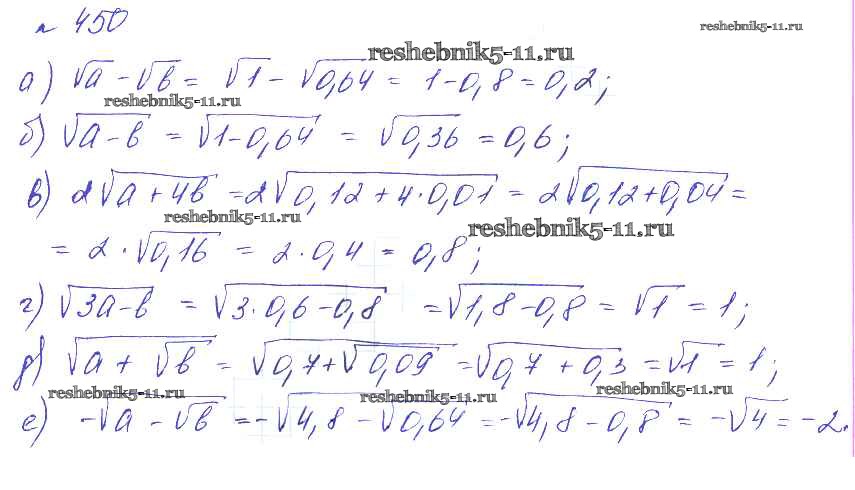 № 450
reshebnik5-11.ru
reshebnik5-11.ru
а) √a - √b = √1 - √0,64 = 1 - 0,8 = 0,2;
reshebnik5-11.ru
б) √(a - b) = √(1 - 0,64) = √0,36 = 0,6;
в) 2√(a + 4b) = 2√(0,12 + 4·0,01) = 2√(0,12 + 0,04) =
reshebnik5-11.ru
reshebnik5-11.ru
= 2·√0,16 = 2·0,4 = 0,8;
г) √(3a - b) = √(3·0,6 - 0,8) = √(1,8 - 0,8) = √1 = 1;
д) √(a + √b) = √(0,7 + √0,09) = √(0,7 + 0,3) = √1 = 1;
reshebnik5-11.ru
reshebnik5-11.ru
reshebnik5-11.ru
е) -√(a - √b) = -√(4,8 - √0,64) = -√(4,8 - 0,8) = -√4 = -2.